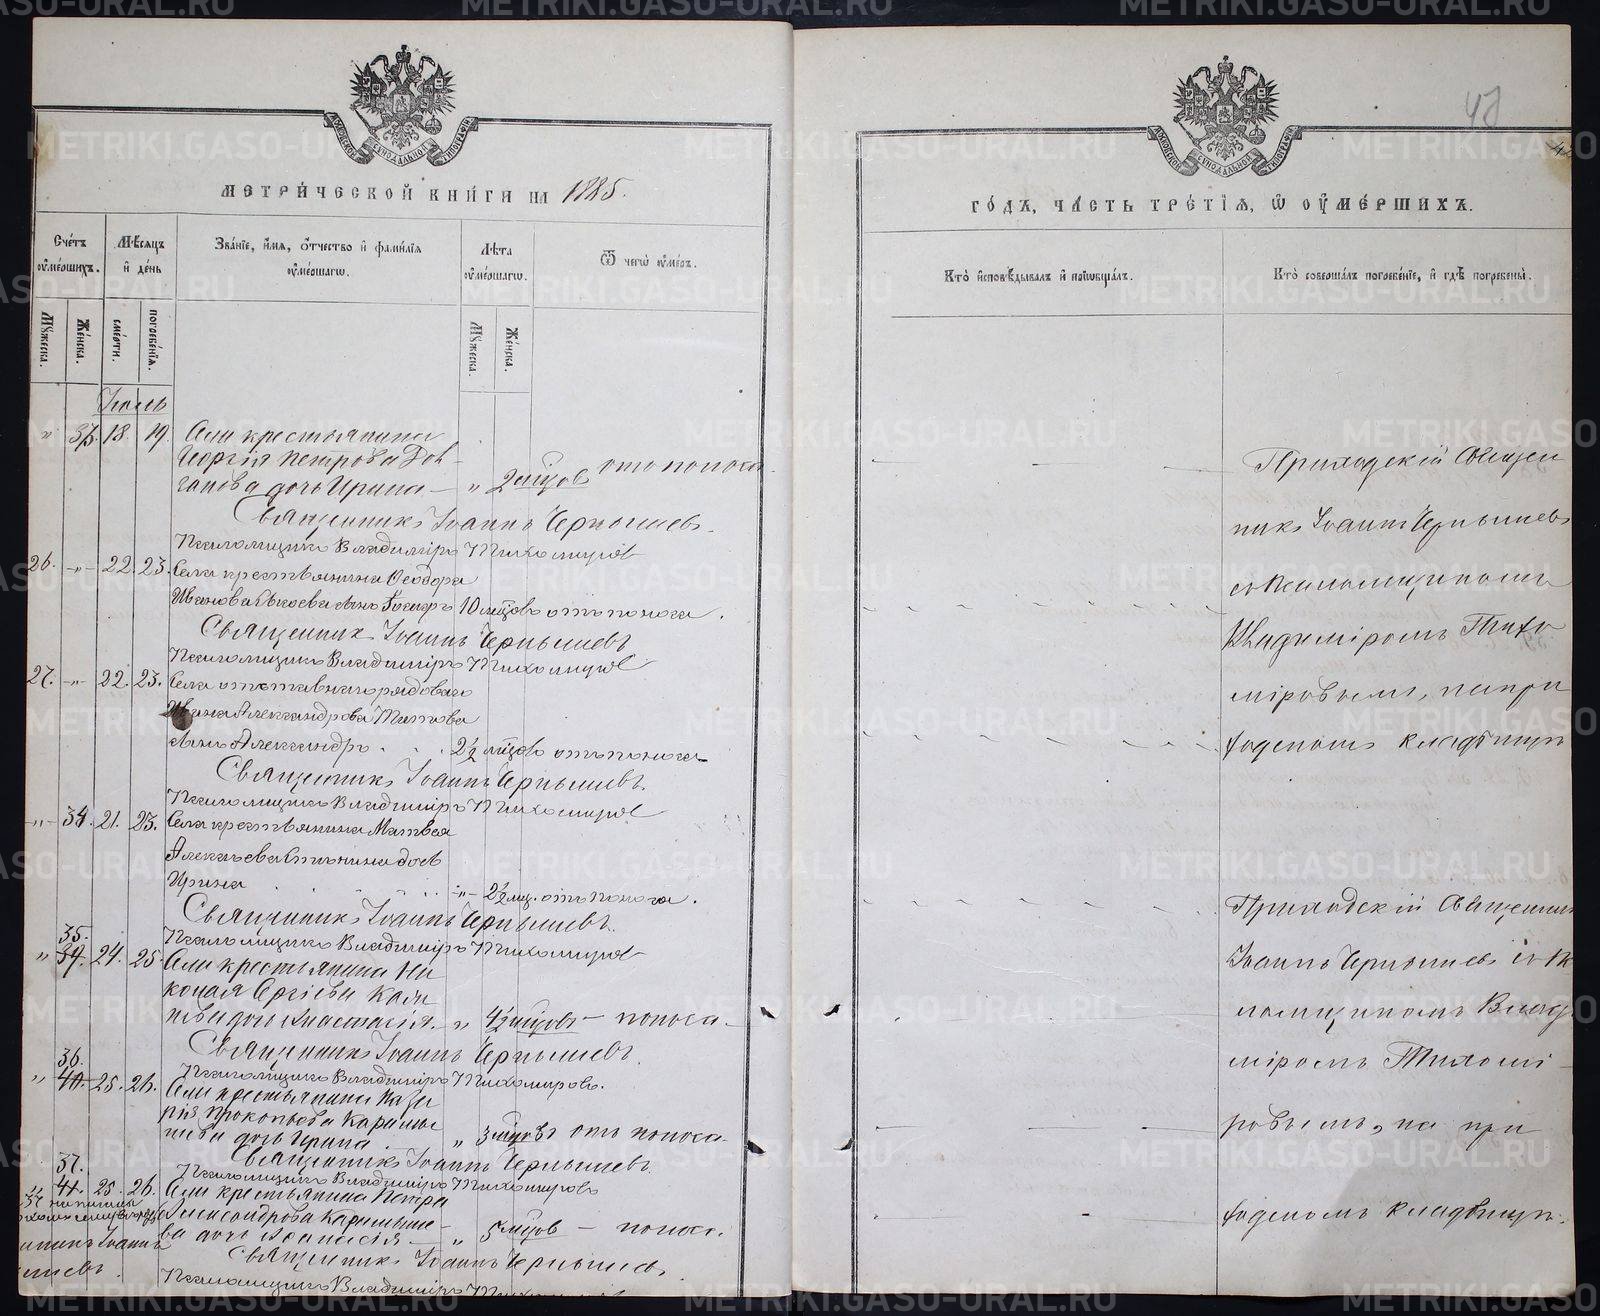 МЕТРИ́ЧЕСКОЙ КНИ́ГИ НА 1885.
Сче́тъ ѹ҆ме́ршихъ.
Мѣ́сяцъ и҆ де́нь
Зва́нїе, и҆́мя, ѻ҆́тчество и҆ фами́лїя ѹ҆ме́ршагѡ.
Лѣ́та ѹ҆ме́ршагѡ.
Ѿ чегѡ̀ ѹ҆́меръ.
Мꙋ́жеска.
Же́нска.
сме́рти.
погребе́нїя.
Мꙋ́жеска.
Же́нска.
Іюль
" 33. 18. 19. Села крестьянина
Георгія Петрова Дол-
ганова дочь Ирина — " 2 мѣсцов отъ поноса.
Священникъ Іоаннъ Чернышевъ.
Псаломщикъ Владиміръ Тихомировъ
26. -"- 22. 23. Села крестьянина Ѳеодора
Иванова сынъ 10 мѣсцовъ отъ поноса.
Священникъ Іоаннъ Чернышевъ
Псаломщикъ Владиміръ Тихомировъ
27. -"- 22. 23. Села отставнаго рядоваго
Ивана Александрова Титова
сынъ Александръ . . . 2½ мѣсцовъ отъ поноса
Священникъ Іоаннъ Чернышевъ.
Псаломщикъ Владиміръ Тихомировъ
-"- 34. 21. 23. Села крестьянина Матвея
Алексѣева дочь
Ирина -"- 2½ мѣс. отъ поноса.
Священникъ Іоаннъ Чернышевъ.
Псаломщикъ Владиміръ Тихомировъ
35.
" 39. 24. 25 Села крестьянина Ни
колая Сергіева
дочь Анастасія. — " 4½ мѣсцовъ — поноса.
Священникъ Іоаннъ Чернышевъ.
36. Псаломщикъ Владиміръ Тихомировъ.
" 40. 25. 26. Села крестьянина
Прокопьева
дочь Ирина " 3 мѣсцовъ отъ поноса.
Священникъ Іоаннъ Чернышевъ.
37. Псаломщикъ Владиміръ Тихомировъ
" 41. 25. 26. Села крестьянина Петра
Александрова
дочь — " 5 мѣсцов — поноса.
Священникъ Іоаннъ Чернышевъ.
Псаломщикъ Владиміръ Тихомировъ
МОСКОВСКОЙ СѴНОДАЛЬНОЙ ТИПОГРАФІИ
48
ГО́ДЪ, ЧА́СТЬ ТРЕ́ТІѦ, Ѡ҆ ОУ҆МЕ́РШИХЪ.
Кто̀ и҆сповѣ́дывалъ и҆ прїѡбща́лъ.
Кто̀ соверша́лъ погребе́нїе, и҆ гдѣ̀ погребены̀.
Приходскій Священ
никъ Іоаннъ Чернышевъ
съ Псаломщикомъ
Владиміромъ Тихо
міровымъ, на при
ходскомъ кладбищѣ
Приходскій Священник
Іоаннъ Чернышевъ съ Пс
ломщикомъ Влад
міромъ Тихомі
ровымъ, на при
ходскомъ кладбищѣ.
METRIKI.GASO-URAL.RU